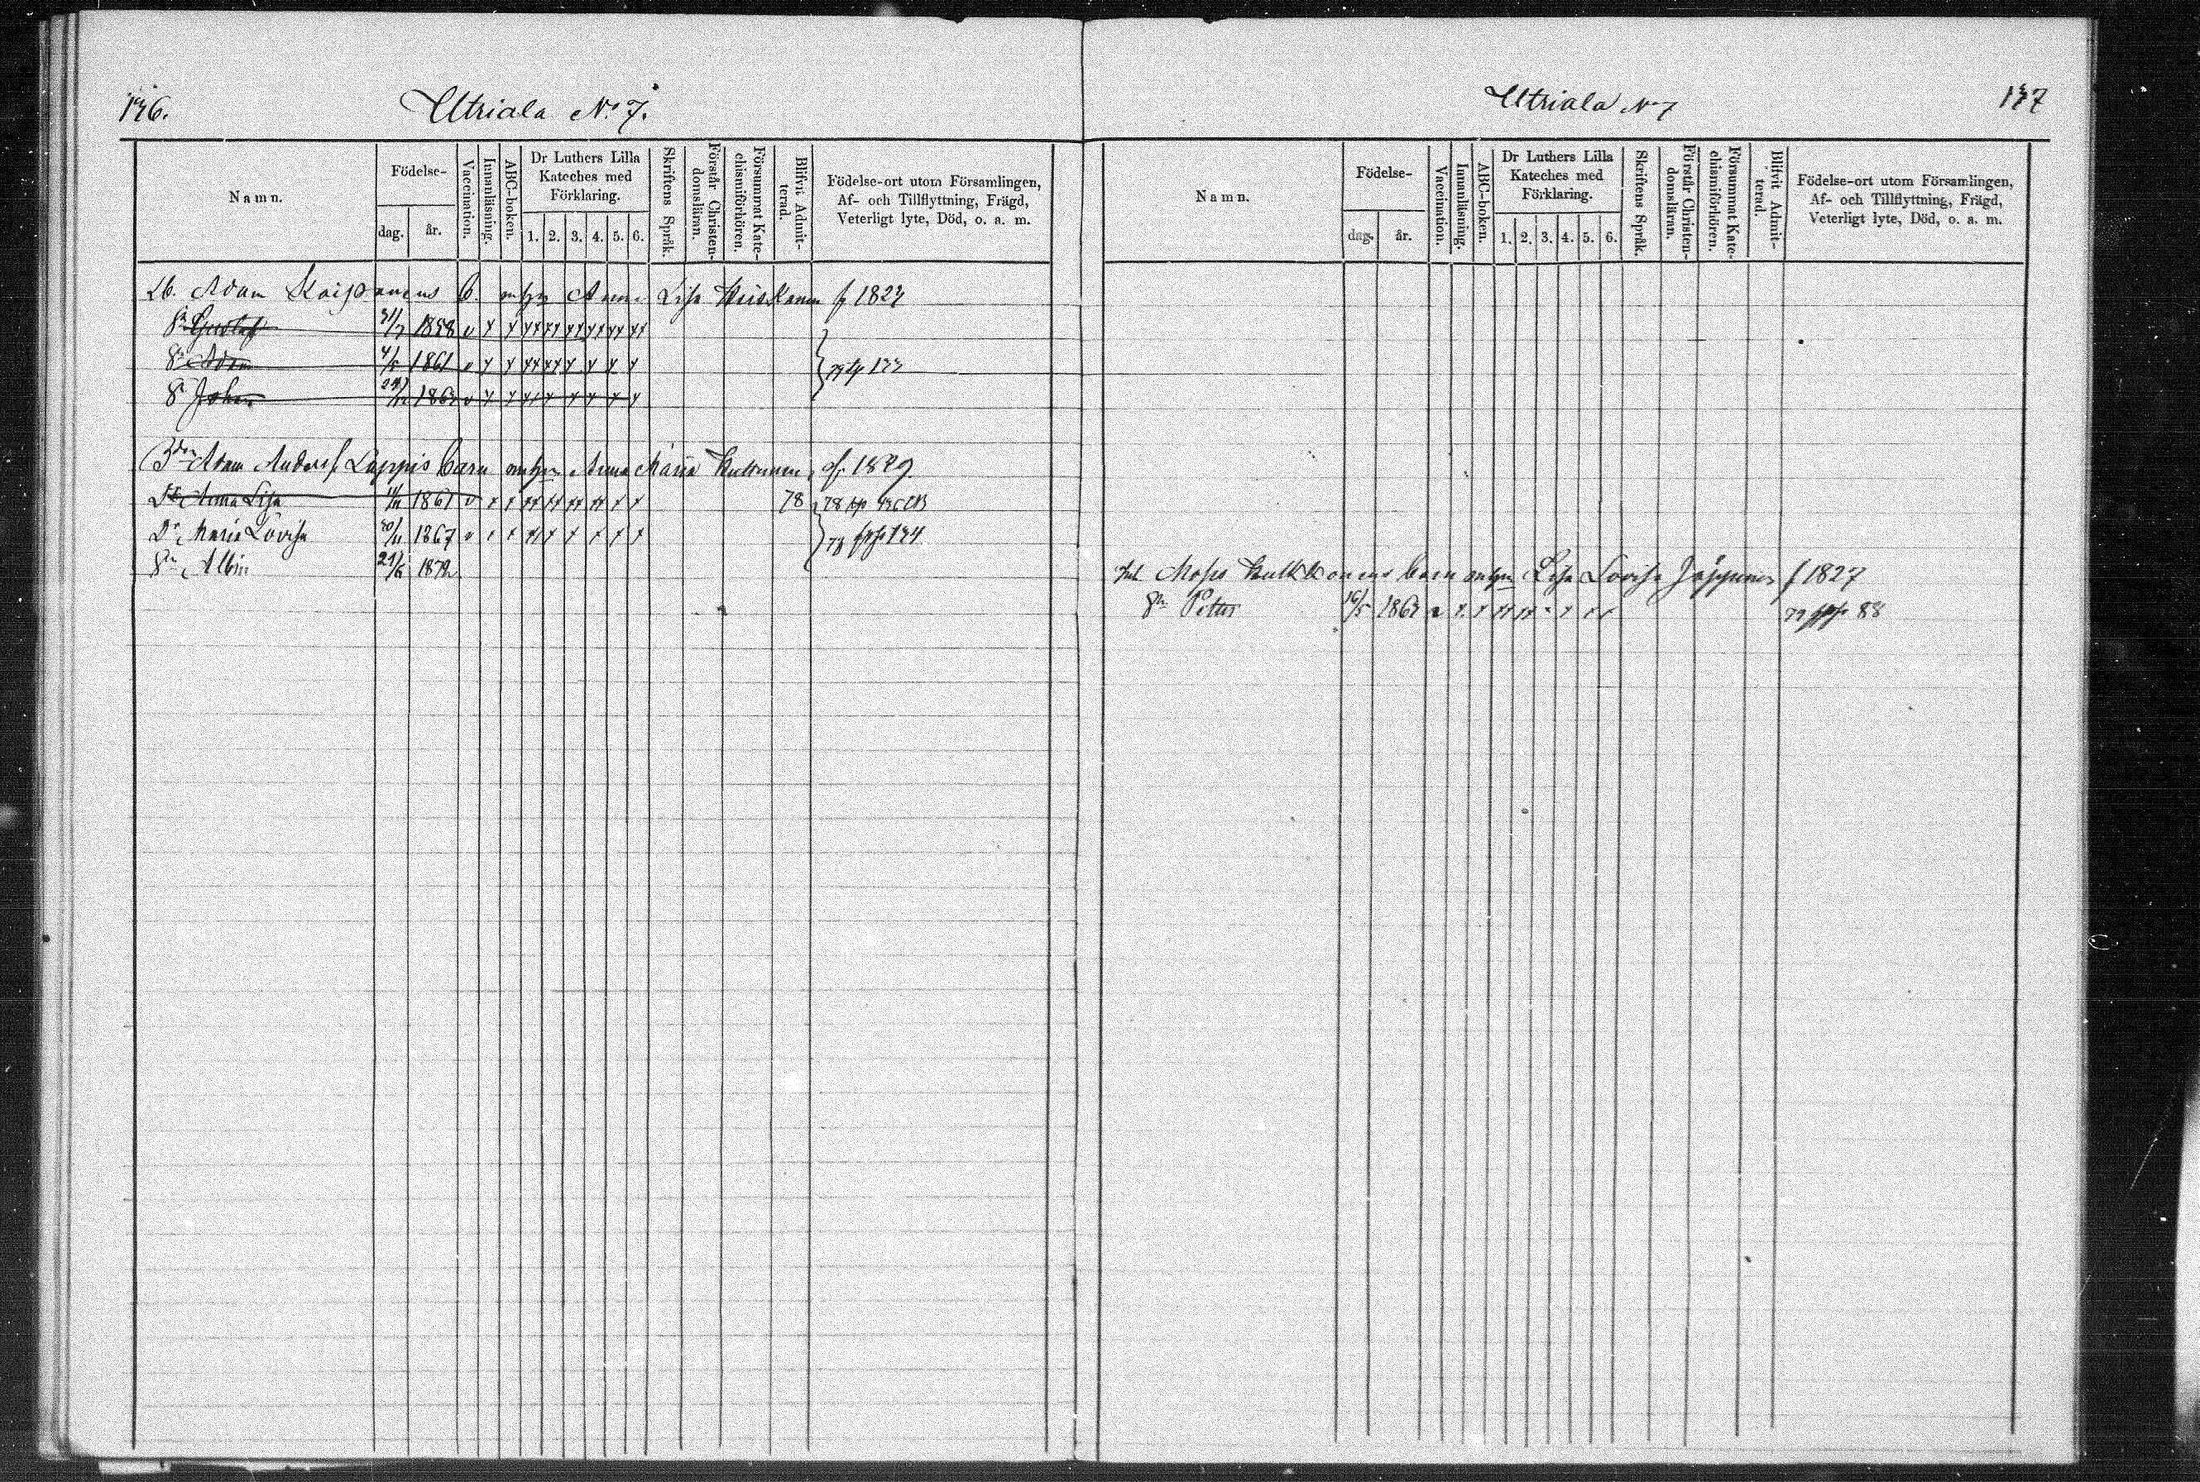 136.
Utriala No 7.
Namn.
Födelse-
dag.
år.
Vaccination.
Innanläsning.
ABC-boken.
Dr Luthers Lilla
Kateches med
Förklaring.
1. 2. 3. 4. 5. 6.
Skriftens Språk.
Förstår Christen-
domslärann.
Försummat Kate-
chismiförhören.
Blifvit Admit-
terad.
Födelse-ort utom Församlingen,
Af- och Tillflyttning, Frägd,
Veterligt lyte, Död, o. a. m.
Adam Anna Lisa f 1823
Sn Gustaf 31/7 1858 v x x xx xx xx xx xx xx
Sn Adam 1861 v x x xx xx x x x x
Sn Johan 1863 v x x x x x x x
133
Adam Anders Lappis barn Anna Maria f 1829
Dr Anna Lisa 1861 v x x xx xx xx xx x x 78 78
Dr Maria Lovisa 1867 v x x x x x x x 78 134
Sn Albin 1872
Utriala No 7
137
Namn.
Födelse-
dag.
år.
Vaccination.
Innanläsning.
ABC-boken.
Dr Luthers Lilla
Kateches med
Förklaring.
1. 2. 3. 4. 5. 6.
Skriftens Språk.
Förstår Christen-
domslärann.
Försummat Kate-
chismiförhören.
Blifvit Admit-
terad.
Födelse-ort utom Församlingen,
Af- och Tillflyttning, Frägd,
Veterligt lyte, Död, o. a. m.
Inh Kulkkonens barn Lisa Lovisa f 1827
Sn Petter 16/5 1863 88